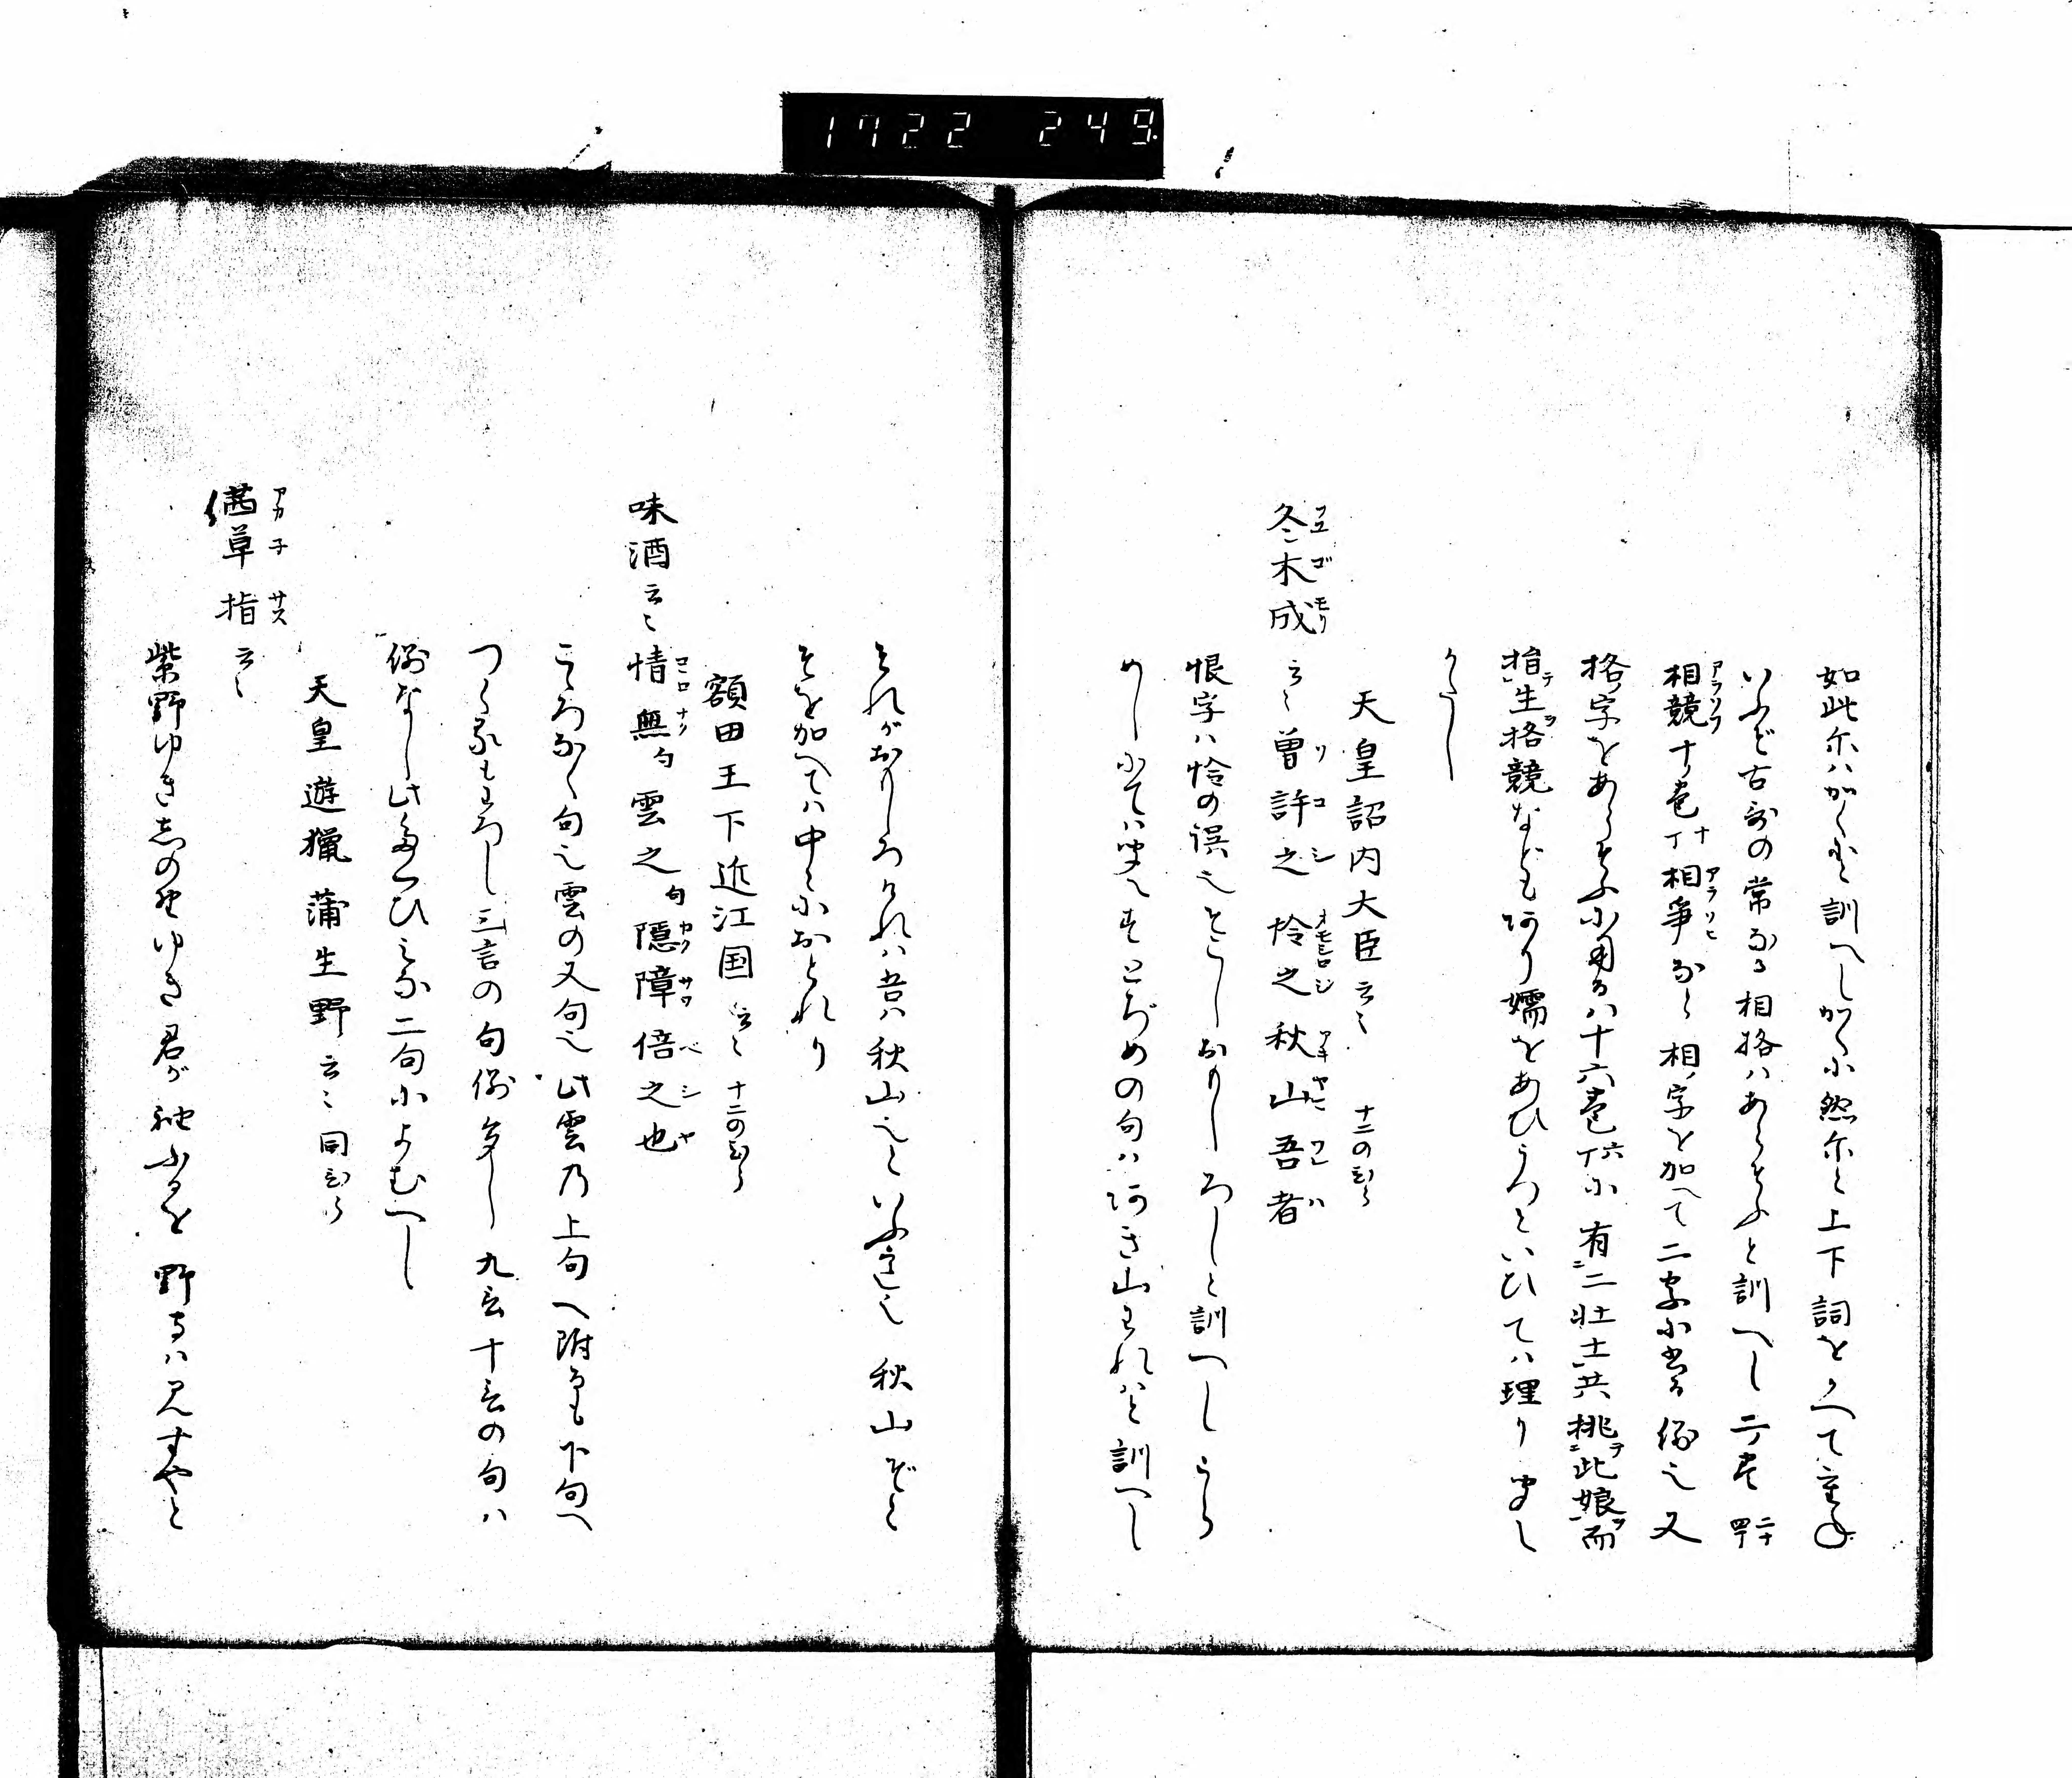 1722 249
如此尓ハかくと訓へしかくに然尓と上下詞をかへて重ね
いふど古歌の常なる相格ハあらそふと訓へし二巻
相競十巻相争なと相ノ字を加へて二字に当る例也又
格ノ字をあらそふに用るハ十六巻に有二壮士共挑此娘而
捨生格競などもあり嬬をあひうつといひてハ理り聞え
かたし
天皇詔内大臣云々 十二のひら
冬木成云々曽許之怜之秋山吾者
恨字ハ怜の誤也そこしおもしろしと訓へしうら
めしにてハ聞えずとぢめの句ハあき山われハと訓へし
それがおもしろけれハ吾ハ秋山也といふ意也秋山ぞと
そを加へてハ中々におとれり
額田王下近江国云々 十二のひら
味酒云々情無句雲之句隠障倍之也
こゝろなく句也雲の又句也此雲乃上句へ附るも下句へ
つくるもわろし三言の句例多し九言十言の句ハ
例なし此たくひみな二句によむへし
天皇遊猟蒲生野云々同ひら
茜草指云々
紫野ゆきしめ野ゆき君が袖ふるを野守ハ見ずやと